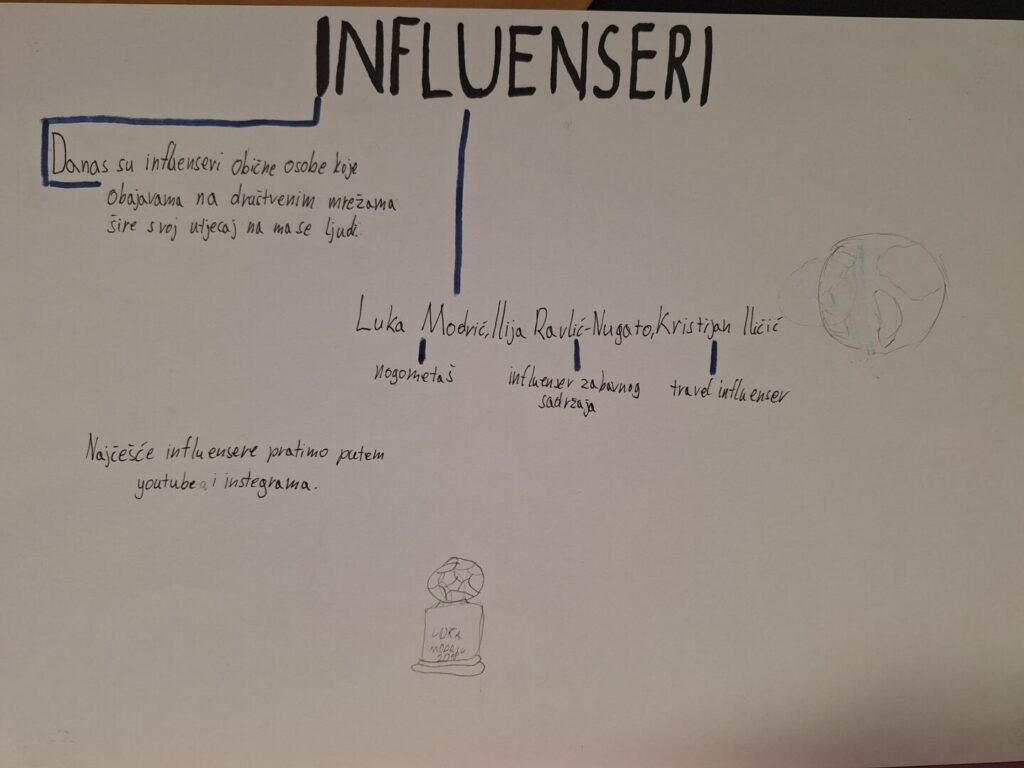 INFLUENSERI
Danas su influenseri obične osobe koje
obajavama na društvenim mrežama
šire svoj utjecaj na mase ljudi.
Luka Modrić, Ilija Ravlić-Nugato, Kristijan Iličić
nogometaš
influenser zabavnog
sadržaja
travel influenser
Najčešće influensere pratimo putem
youtubea i instegrama.
LUKA